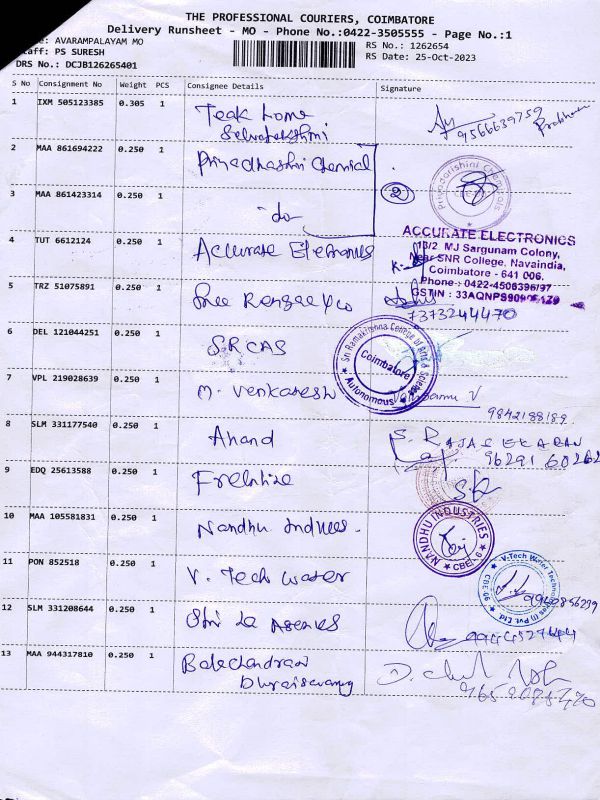 THE PROFESSIONAL COURIERS, COIMBATORE
Delivery Runsheet - MO - Phone No.:0422-3505555 - Page No.:1
AVARAMPALAYAM MO
RS No.: 1262654
Staff: PS SURESH
RS Date: 25-Oct-2023
DRS No.: DCJB126265401
S No Consignment No Weight PCS Consignee Details Signature
1 IXM 505123385 0.305 1 Teak home
Selvalakshmi
9566639759
2 MAA 861694222 0.250 1 Priyadharshini Chemical
Priyadarishini Chemicals
3 MAA 861423314 0.250 1 do
2
4 TUT 6612124 0.250 1 Accurate Electronics
ACCURATE ELECTRONICS
13/2 MJ Sargunam Colony,
Near SNR College, Navaindia,
Coimbatore - 641 006.
Phone : 0422-4506396/97
GSTIN : 33AQNPS9090
5 TRZ 51075891 0.250 1 Sree Rengaa & Co
7373244470
6 DEL 121044251 0.250 1 SRCAS
Sri Ramakrishna College of Arts & Science
Coimbatore
Autonomous
7 VPL 219028639 0.250 1 M. Venkatesh
9842188189
8 SLM 331177540 0.250 1 Anand
S. RAJASEKARAN
9629160262
9 EDQ 25613588 0.250 1
S.R
10 MAA 105581831 0.250 1 Nandhu Indues.
NANDHU INDUSTRIES
CBE-6
11 PON 852518 0.250 1 V. Tech water
V-Tech Water Technologies (I) Pvt. Ltd
CBE-06
9942856299
12 SLM 331208644 0.250 1 Sri
9944527444
13 MAA 944317810 0.250 1 Balachandran
Dhuraiswamy
9659075470